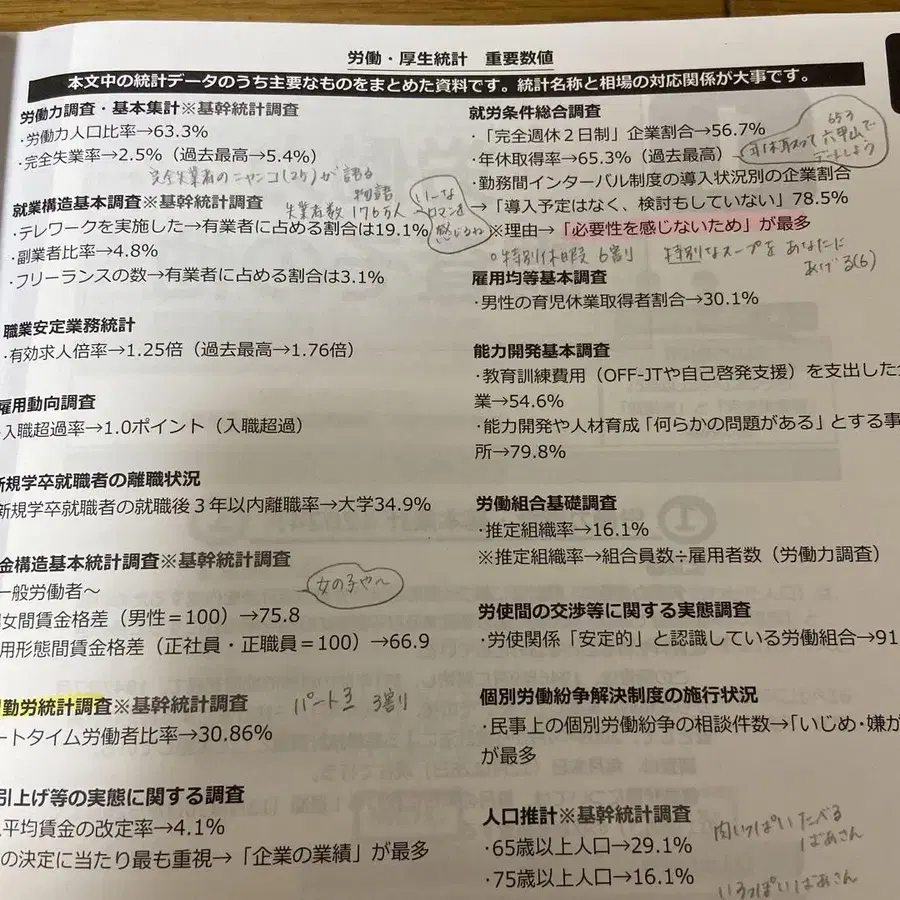 労働・厚生統計 重要数値
本文中の統計データのうち主要なものをまとめた資料です。統計名称と相場の対応関係が大事です。
労働力調査・基本集計※基幹統計調査
・労働力人口比率→63.3%
・完全失業率→2.5%（過去最高→5.4%）
完全失業者のニャンコ(25)が語る
物語
失業者数 176万人
いーな
ロマンを
感じるね
就業構造基本調査※基幹統計調査
・テレワークを実施した→有業者に占める割合は19.1%
・副業者比率→4.8%
・フリーランスの数→有業者に占める割合は3.1%
職業安定業務統計
・有効求人倍率→1.25倍（過去最高→1.76倍）
雇用動向調査
入職超過率→1.0ポイント（入職超過）
新規学卒就職者の離職状況
新規学卒就職者の就職後３年以内離職率→大学34.9%
金構造基本統計調査※基幹統計調査
一般労働者～
女の子や～
女間賃金格差（男性＝100）→75.8
用形態間賃金格差（正社員・正職員＝100）→66.9
勤労統計調査※基幹統計調査
パート 3割
ートタイム労働者比率→30.86%
引上げ等の実態に関する調査
平均賃金の改定率→4.1%
の決定に当たり最も重視→「企業の業績」が最多
就労条件総合調査
・「完全週休２日制」企業割合→56.7%
・年休取得率→65.3%（過去最高）
653
年休取って六甲山で
デートしよう
・勤務間インターバル制度の導入状況別の企業割合
→「導入予定はなく、検討もしていない」78.5%
※理由→「必要性を感じないため」が最多
○特別休暇 6割 特別なスープをあなたに
あげる(6)
雇用均等基本調査
・男性の育児休業取得者割合→30.1%
能力開発基本調査
・教育訓練費用（OFF-JTや自己啓発支援）を支出した
業→54.6%
・能力開発や人材育成「何らかの問題がある」とする事
所→79.8%
労働組合基礎調査
・推定組織率→16.1%
※推定組織率→組合員数÷雇用者数（労働力調査）
労使間の交渉等に関する実態調査
・労使関係「安定的」と認識している労働組合→91
個別労働紛争解決制度の施行状況
・民事上の個別労働紛争の相談件数→「いじめ・嫌が
が最多
人口推計※基幹統計調査
・65歳以上人口→29.1%
肉いっぱいたべる
ばあさん
・75歳以上人口→16.1%
いろっぽいばあさん